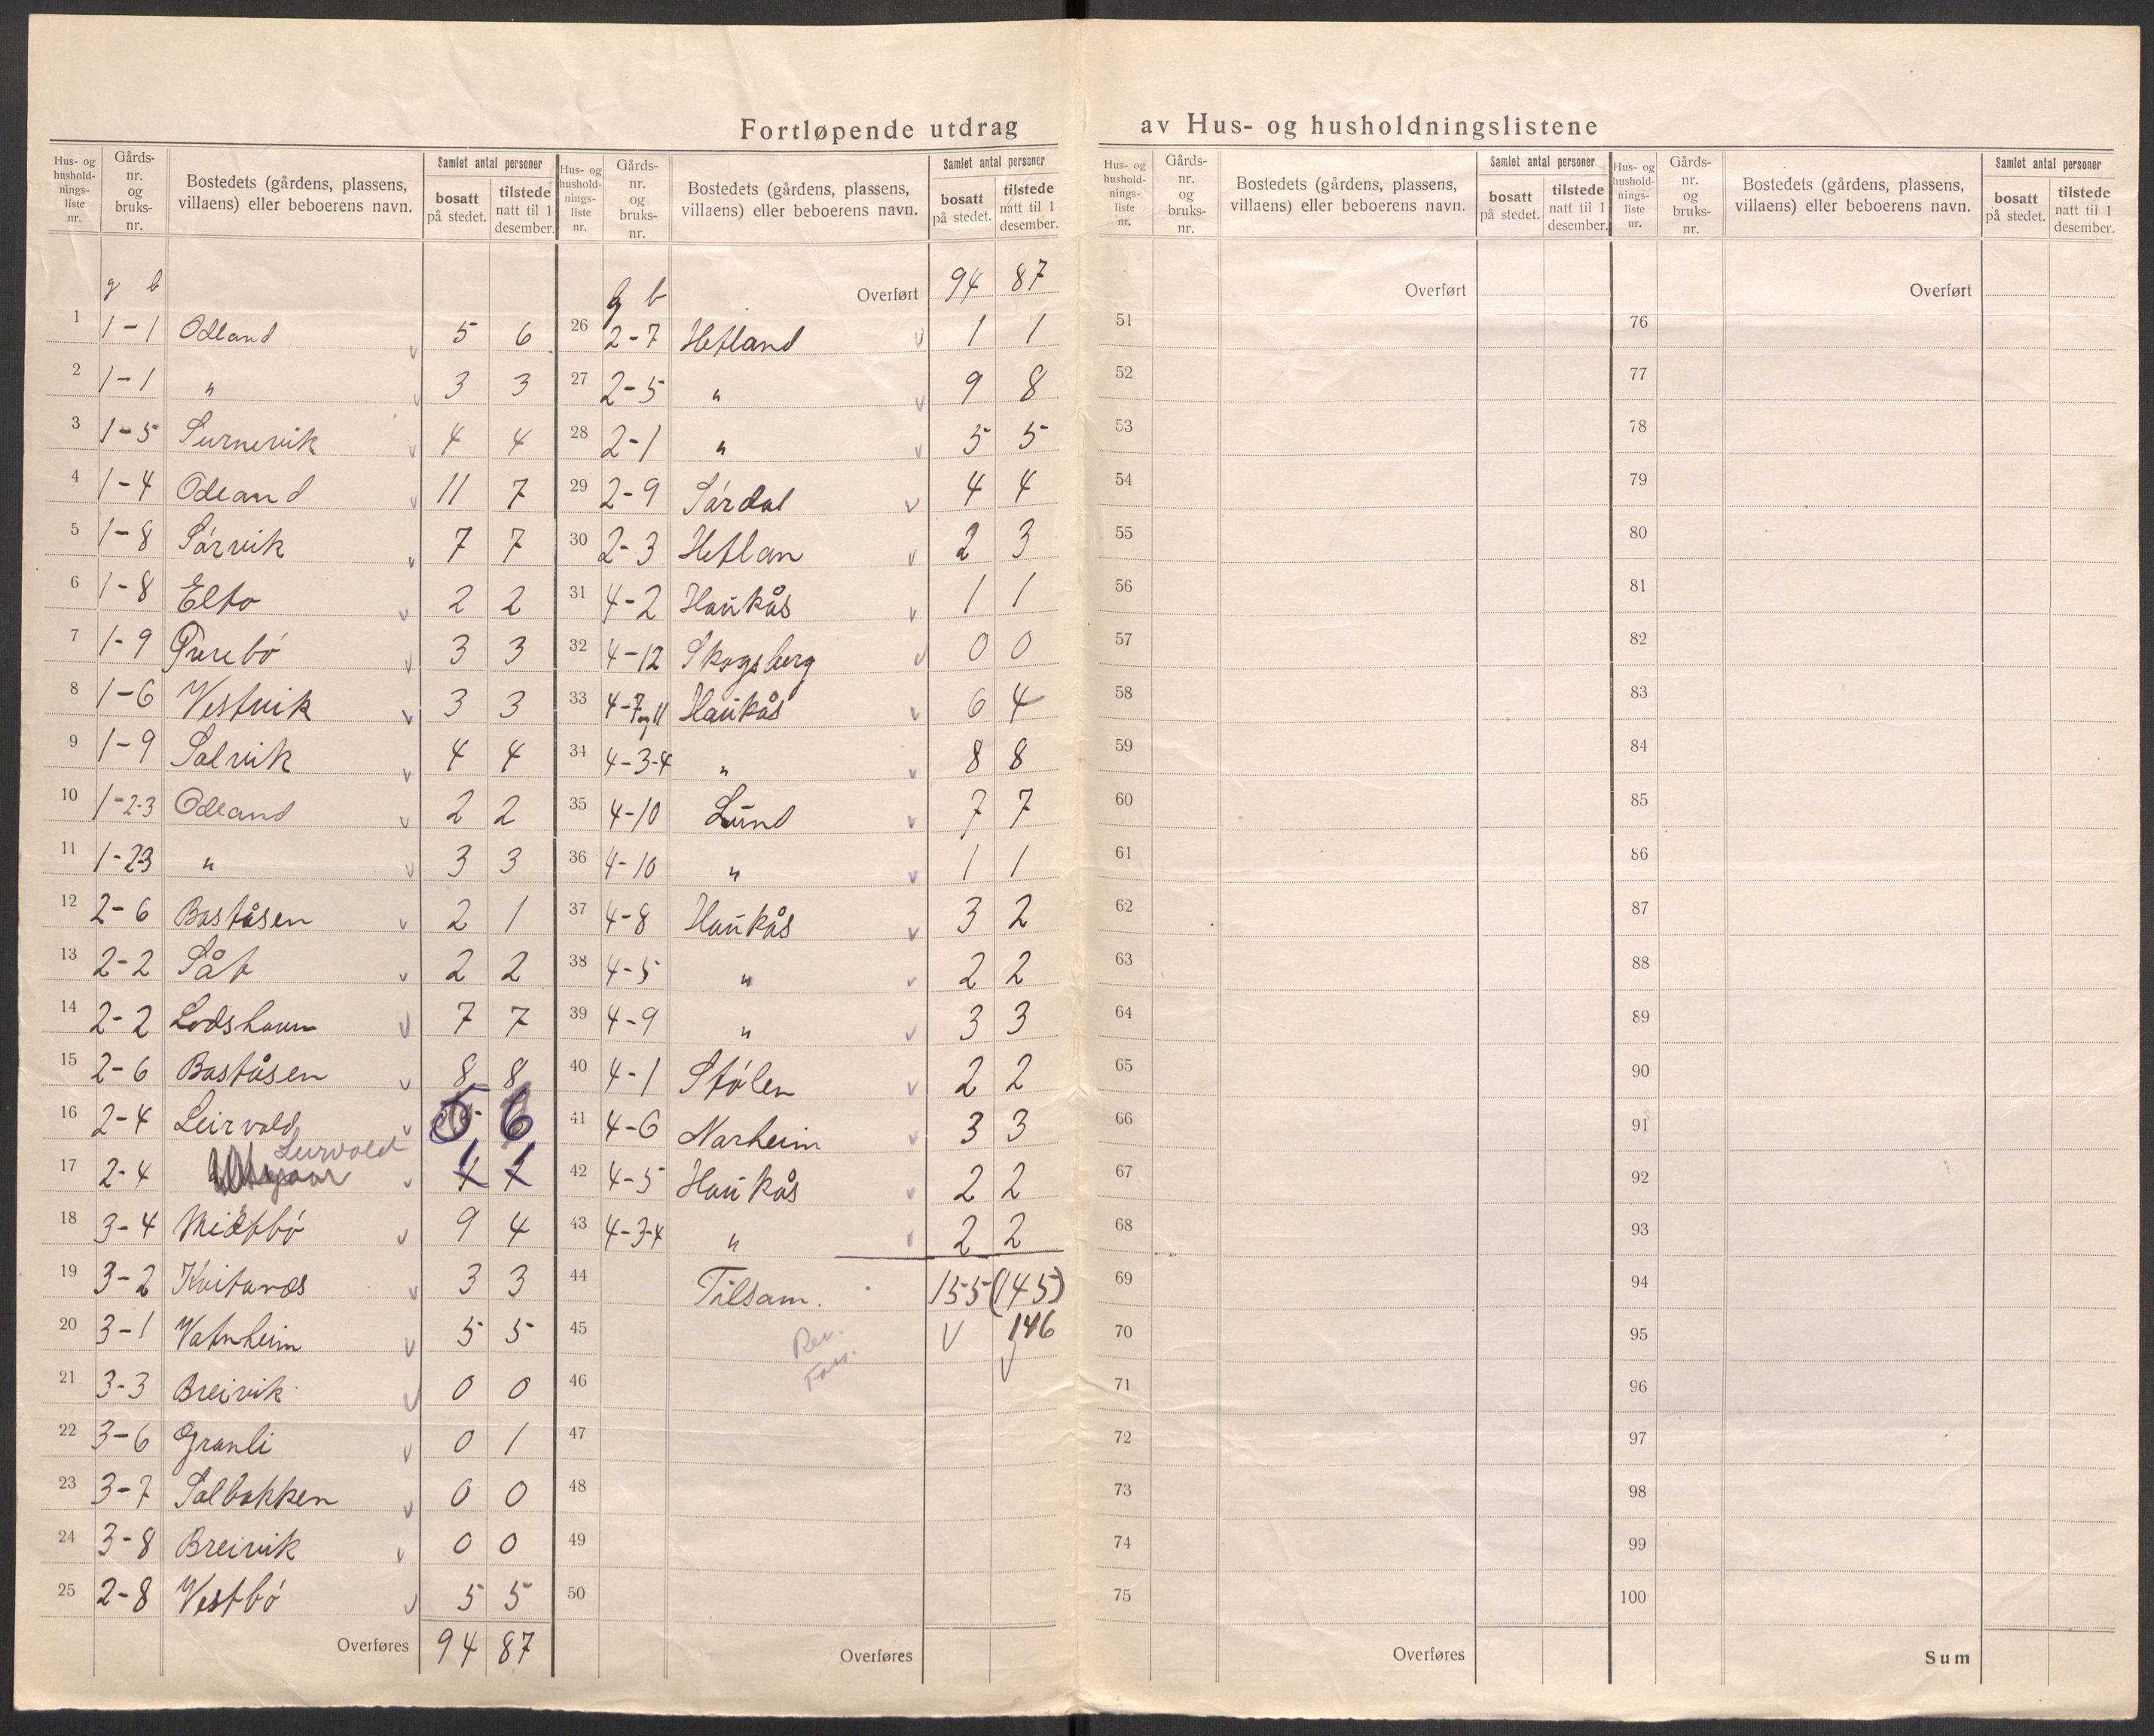 Fortløpende utdrag av Hus- og husholdningslistene
Hus- og husholdningsliste nr. | Gårds-nr. og bruks-nr. | Bostedets (gårdens, plassens, villaens) eller beboerens navn. | Samlet antal personer | bosatt på stedet. | tilstede natt til 1 desember.
g b
1 1-1 Odland 5 6
2 1-1 " 3 3
3 1-5 Surnevik 4 4
4 1-4 Odland 11 7
5 1-8 Sørvik 7 7
6 1-8 Elto 2 2
7 1-9 3 3
8 1-6 Vestvik 3 3
9 1-9 Solvik 4 4
10 1-2-3 Odland 2 2
11 1-23 " 3 3
12 2-6 Baståsen 2 1
13 2-2 Såt 2 2
14 2-2 Lodshavn 7 7
15 2-6 Baståsen 8 8
16 2-4 Leirvold 5 6
17 2-4 Leirvold 1 1
18 3-4 Midtbø 9 4
19 3-2 Kvitanes 3 3
20 3-1 Vatnheim 5 5
21 3-3 Breivik 0 0
22 3-6 Granli 0 1
23 3-7 Solbakken 0 0
24 3-8 Breivik 0 0
25 2-8 Vestbø 5 5
Overføres 94 87
Hus- og husholdningsliste nr. | Gårds-nr. og bruks-nr. | Bostedets (gårdens, plassens, villaens) eller beboerens navn. | Samlet antal personer | bosatt på stedet. | tilstede natt til 1 desember.
g b Overført 94 87
26 2-7 Hetland 1 1
27 2-5 " 9 8
28 2-1 " 5 5
29 2-9 Sørdal 4 4
30 2-3 Hetlan 2 3
31 4-2 Haukås 1 1
32 4-12 Skogsberg 0 0
33 4-7 og 11 Haukås 6 4
34 4-3-4 " 8 8
35 4-10 Lund 7 7
36 4-10 " 1 1
37 4-8 Haukås 3 2
38 4-5 " 2 2
39 4-9 " 3 3
40 4-1 Stølen 2 2
41 4-6 Narheim 3 3
42 4-5 Haukås 2 2
43 4-3-4 " 2 2
44 Tilsam. 155 (145)
45 146
Rev.
46
47
48
49
50
Overføres
Hus- og husholdningsliste nr. | Gårds-nr. og bruks-nr. | Bostedets (gårdens, plassens, villaens) eller beboerens navn. | Samlet antal personer | bosatt på stedet. | tilstede natt til 1 desember.
Overført
51
52
53
54
55
56
57
58
59
60
61
62
63
64
65
66
67
68
69
70
71
72
73
74
75
Overføres
Hus- og husholdningsliste nr. | Gårds-nr. og bruks-nr. | Bostedets (gårdens, plassens, villaens) eller beboerens navn. | Samlet antal personer | bosatt på stedet. | tilstede natt til 1 desember.
Overført
76
77
78
79
80
81
82
83
84
85
86
87
88
89
90
91
92
93
94
95
96
97
98
99
100
Sum